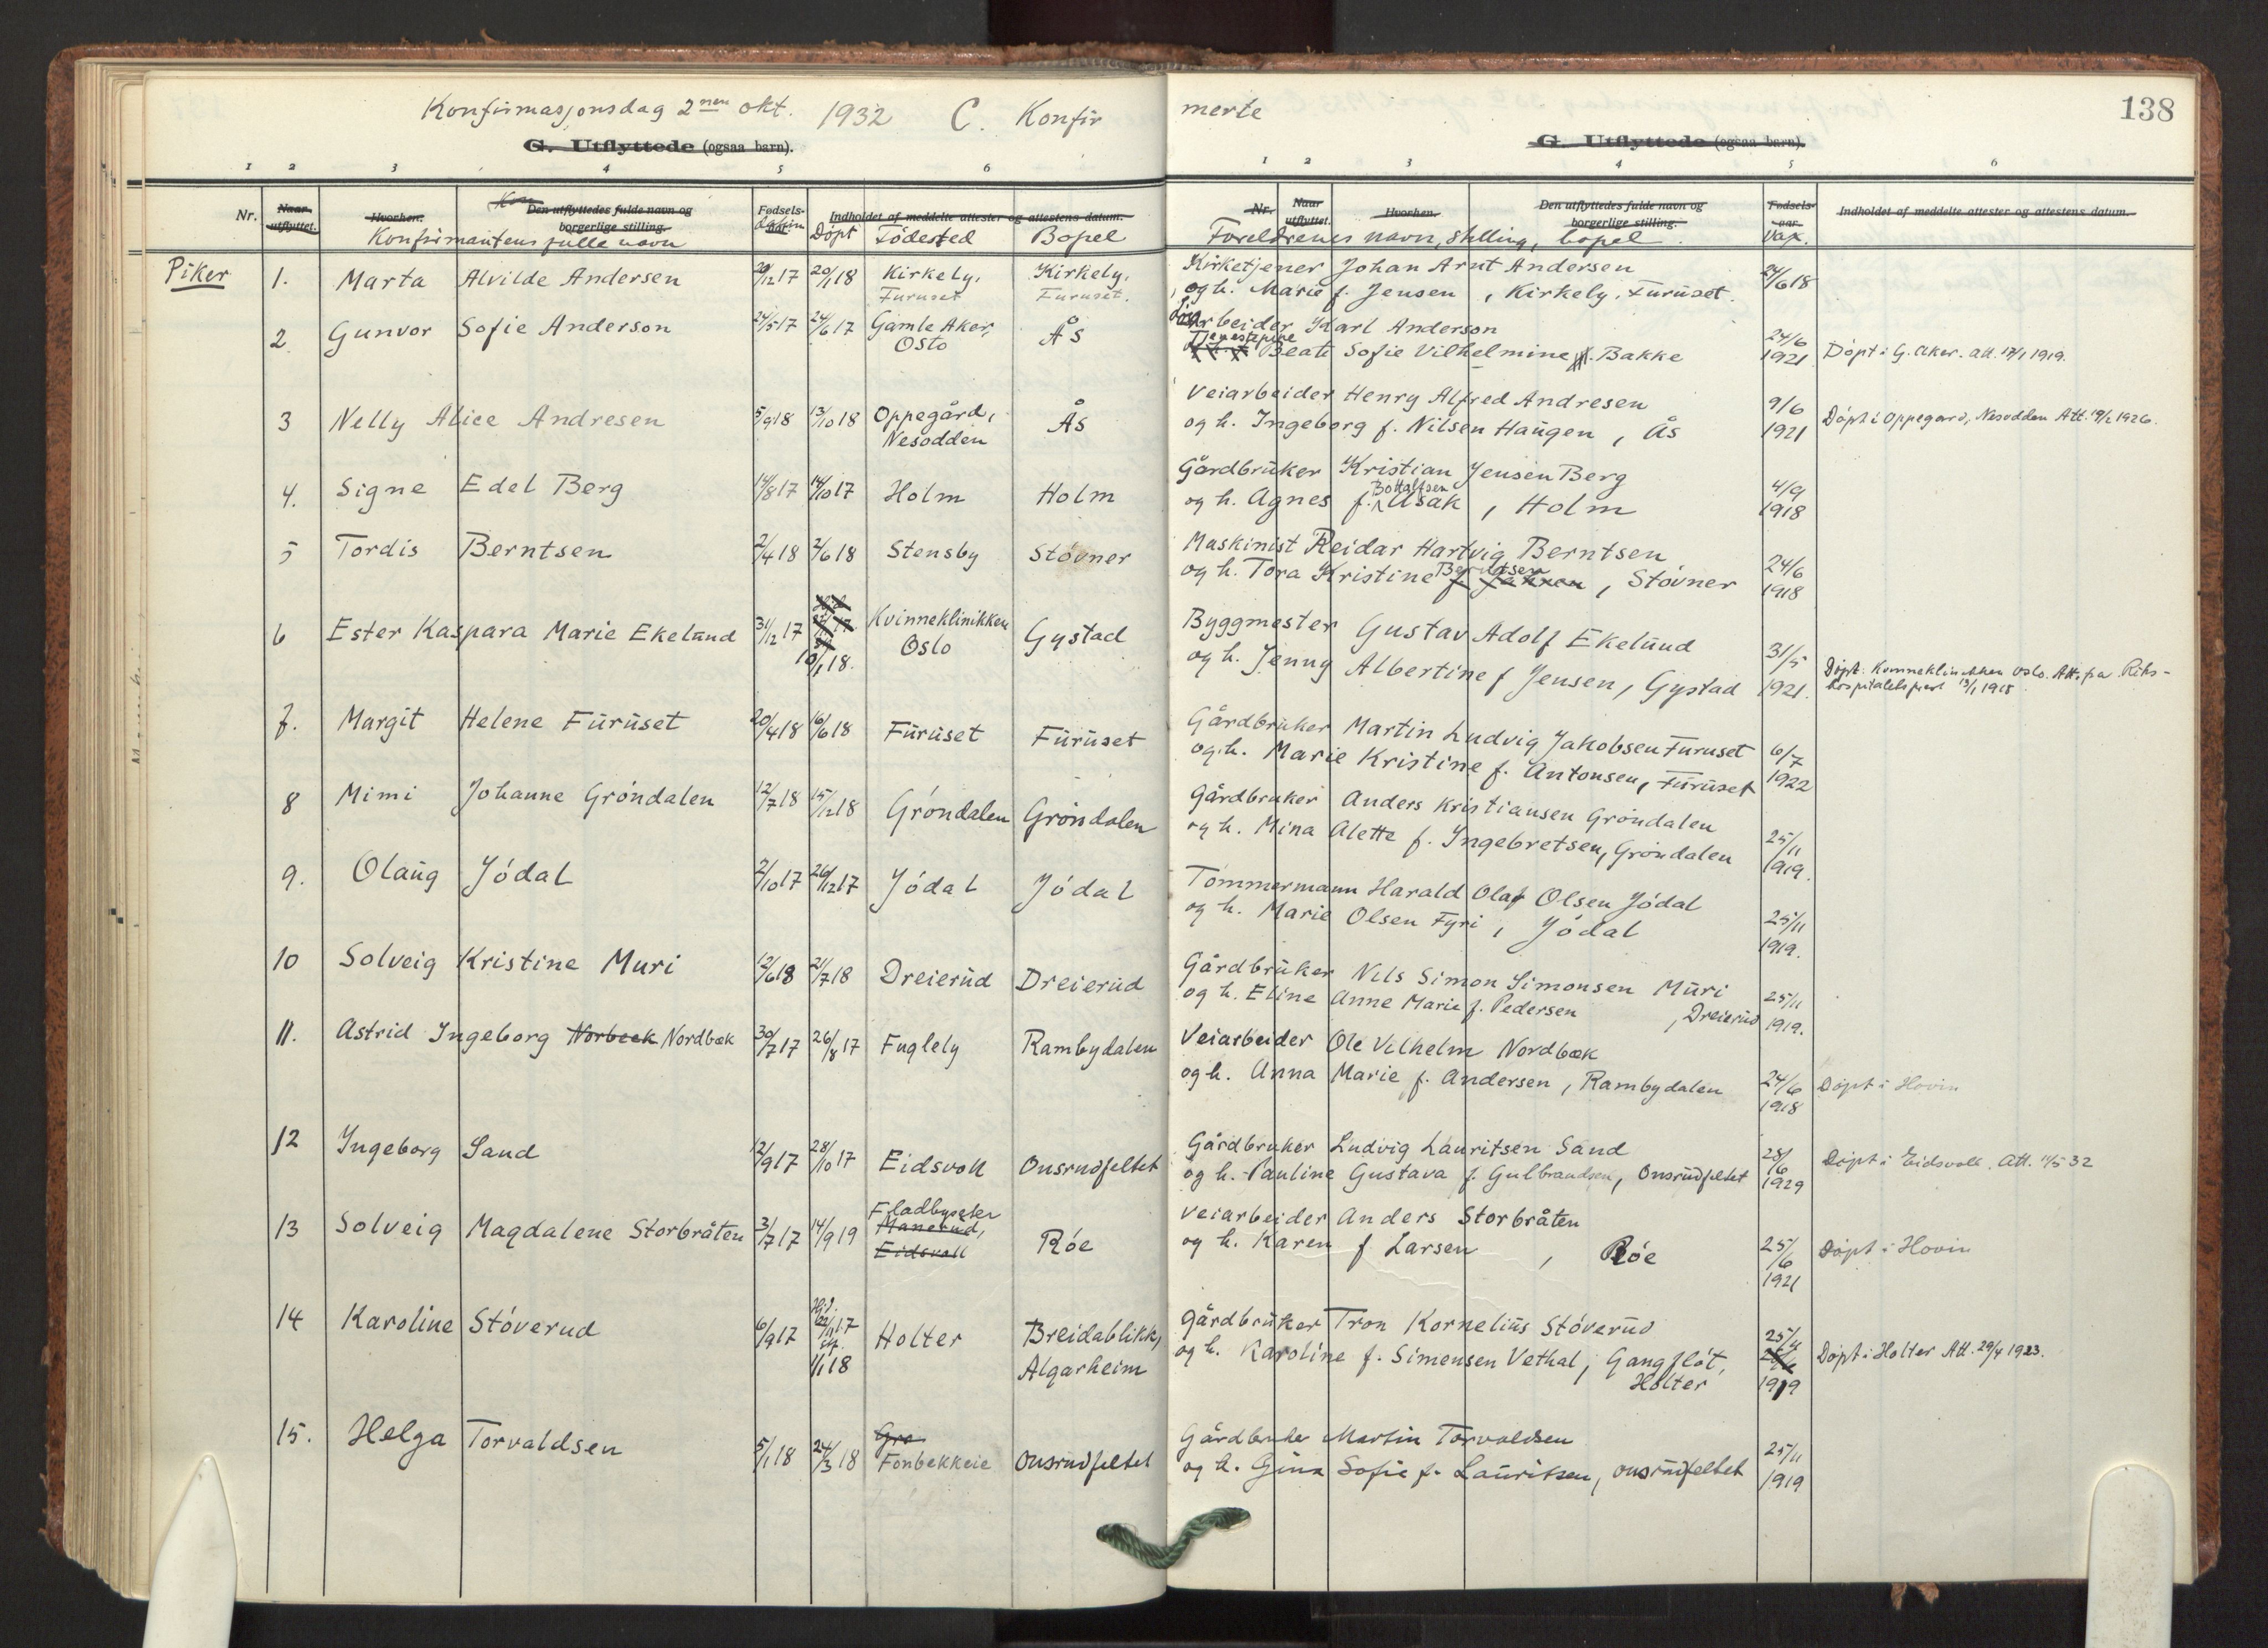 Konfirmasjonsdag 2nen okt. 1932 C. Konfirmerte
138
G. Utflyttede (ogsaa barn).
G. Utflyttede (ogsaa barn).
1 2 3 4 5 6
1 2 3 4 5 6
Nr. Naar utflyttet. Hvorhen. Den utflyttedes fulde navn og borgerlige stilling. Fødselsaar. Indholdet af meddelte attester og attestens datum.
Nr. Naar utflyttet. Hvorhen. Den utflyttedes fulde navn og borgerlige stilling. Fødselsaar. Indholdet af meddelte attester og attestens datum.
Konfirmantens fulle navn datum Døpt Födested Bopel
Foreldrenes navn, stilling, bopel. Vax.
Piker 1. Marta Alvilde Andersen 29/12 17 20/1 18 Kirkely, Furuset Kirkely, Furuset.
Kirketjener Johan Arnt Andersen
og h. Marie f. Jensen, Kirkely, Furuset. 24/6 18
2 Gunvor Sofie Anderson 24/5 17 24/6 17 Gamle Aker, Oslo Ås
Arbeider Karl Anderson
Tjenestepike Beate Sofie Vilhelmine Bakke 24/6 1921 Döpt i G. Aker. Att. 17/1 1919.
3 Nelly Alice Andresen 5/9 18 13/10 18 Oppegård, Nesodden Ås
Veiarbeider Henry Alfred Andresen
og h. Ingeborg f. Nilsen Haugen, Ås 9/6 1921 Döpt i Oppegård, Nesodden Att. 19/2 1926.
4. Signe Edel Berg 14/8 17 14/10 17 Holm Holm
Gårdbruker Kristian Jensen Berg
og h. Agnes f. Bottolfsen Åsak, Holm 4/9 1918
5 Tordis Berntsen 2/4 18 2/6 18 Stensby Stövner
Maskinist Reidar Hartvig Berntsen
og h. Tora Kristine Berntsen, Stövner 24/6 1918
6 Ester Kaspara Marie Ekelund 31/12 17 10/1 18. Kvinneklinikken Oslo Gystad
Byggmester Gustav Adolf Ekelund
og h. Jenny Albertine f Jensen, Gystad 31/5 1921. Döpt i Kvinneklinikken Oslo. Att. fra Rikshospitalets prest 13/1 1918.
7. Margit Helene Furuset 20/4 18 16/6 18 Furuset Furuset
Gårdbruker Martin Ludvig Jakobsen Furuset
og h. Marie Kristine f. Antonsen, Furuset 6/7 1922
8 Mimi Johanne Gröndalen 12/7 18 15/12 18 Gröndalen Gröndalen
Gårdbruker Anders Kristiansen Gröndalen
og h. Mina Alette f. Ingebretsen, Gröndalen 25/11 1919.
9. Olaug Jödal 2/10 17 26/12 17 Jödal Jödal
Tömmermann Harald Olaf Olsen Jödal
og h. Marie Olsen Fyri, Jödal 25/11 1919.
10 Solveig Kristine Muri 12/6 18 21/7 18 Dreierud Dreierud
Gårdbruker Nils Simon Simonsen Muri
og h. Eline Anne Marie f. Pedersen, Dreierud 25/11 1919.
11. Astrid Ingeborg Norbeek Nordbæk 30/7 17 26/8 17 Fuglely Rambydalen
Veiarbeider Ole Vilhelm Nordbæk
og h. Anna Marie f. Andersen, Rambydalen 24/6 1918 Döpt i Hovin
12 Ingeborg Sand 12/9 17 28/10 17 Eidsvoll Onsrudfeltet
Gårdbruker Ludvig Lauritsen Sand
og h. Pauline Gustava f. Gulbrandsen, Onsrudfeltet 28/6 1929 Döpt i Eidsvoll. Att. 11/5 32
13 Solveig Magdalene Storbråten 3/7 17 14/9 19 Fladbyseter Manerud, Eidsvoll Röe
Veiarbeider Anders Storbråten
og h. Karen f Larsen, Röe 25/6 1921 Döpt i Hovin
14 Karoline Stöverud 6/9 17 Hjd. 22/11 17 1/1 18 Holter Breidablikk, Algarheim
Gårdbruker Tron Kornelius Stöverud
og h. Karoline f. Simensen Vethal, Gangflöt, Holter 25/11 1919 Döpt i Holter Att. 29/4 1923.
15. Helga Torvaldsen 5/1 18 24/3 18 Gro Fonbekkeie Onsrudfeltet
Gårdbruker Martin Torvaldsen
og h. Gina Sofie f. Lauritsen, Onsrudfeltet 25/11 1919